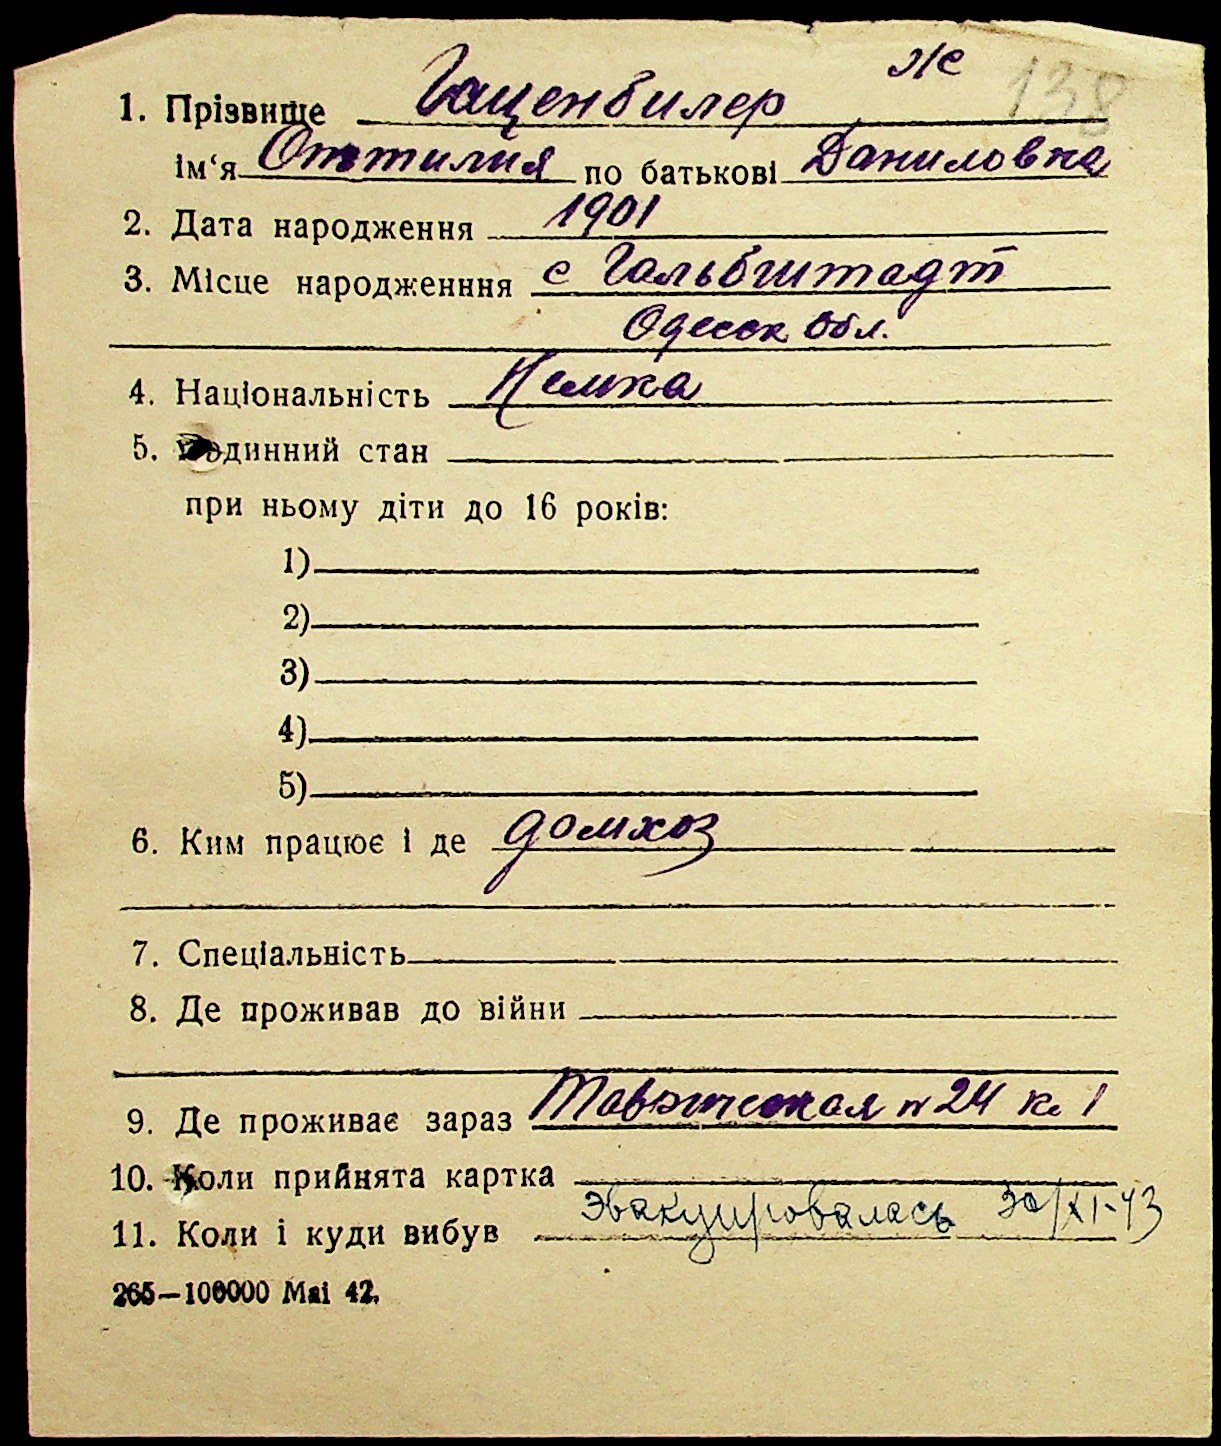 Ж 138
1. Прізвище Гаценбилер
ім‘я Оттилия по батькові Даниловна
2. Дата народження 1901
3. Місце народженння с Гальбштадт
Одесск Обл.
4. Національність Немка
5. Родинний стан
при ньому діти до 16 років:
1)
2)
3)
4)
5)
6. Ким працює і де домхоз
7. Спеціальність
8. Де проживав до війни
9. Де проживає зараз N 24 к. 1
10. Коли прийнята картка
11. Коли і куди вибув Эвакуировалась 30/XI-43
265—100000 Mai 42.